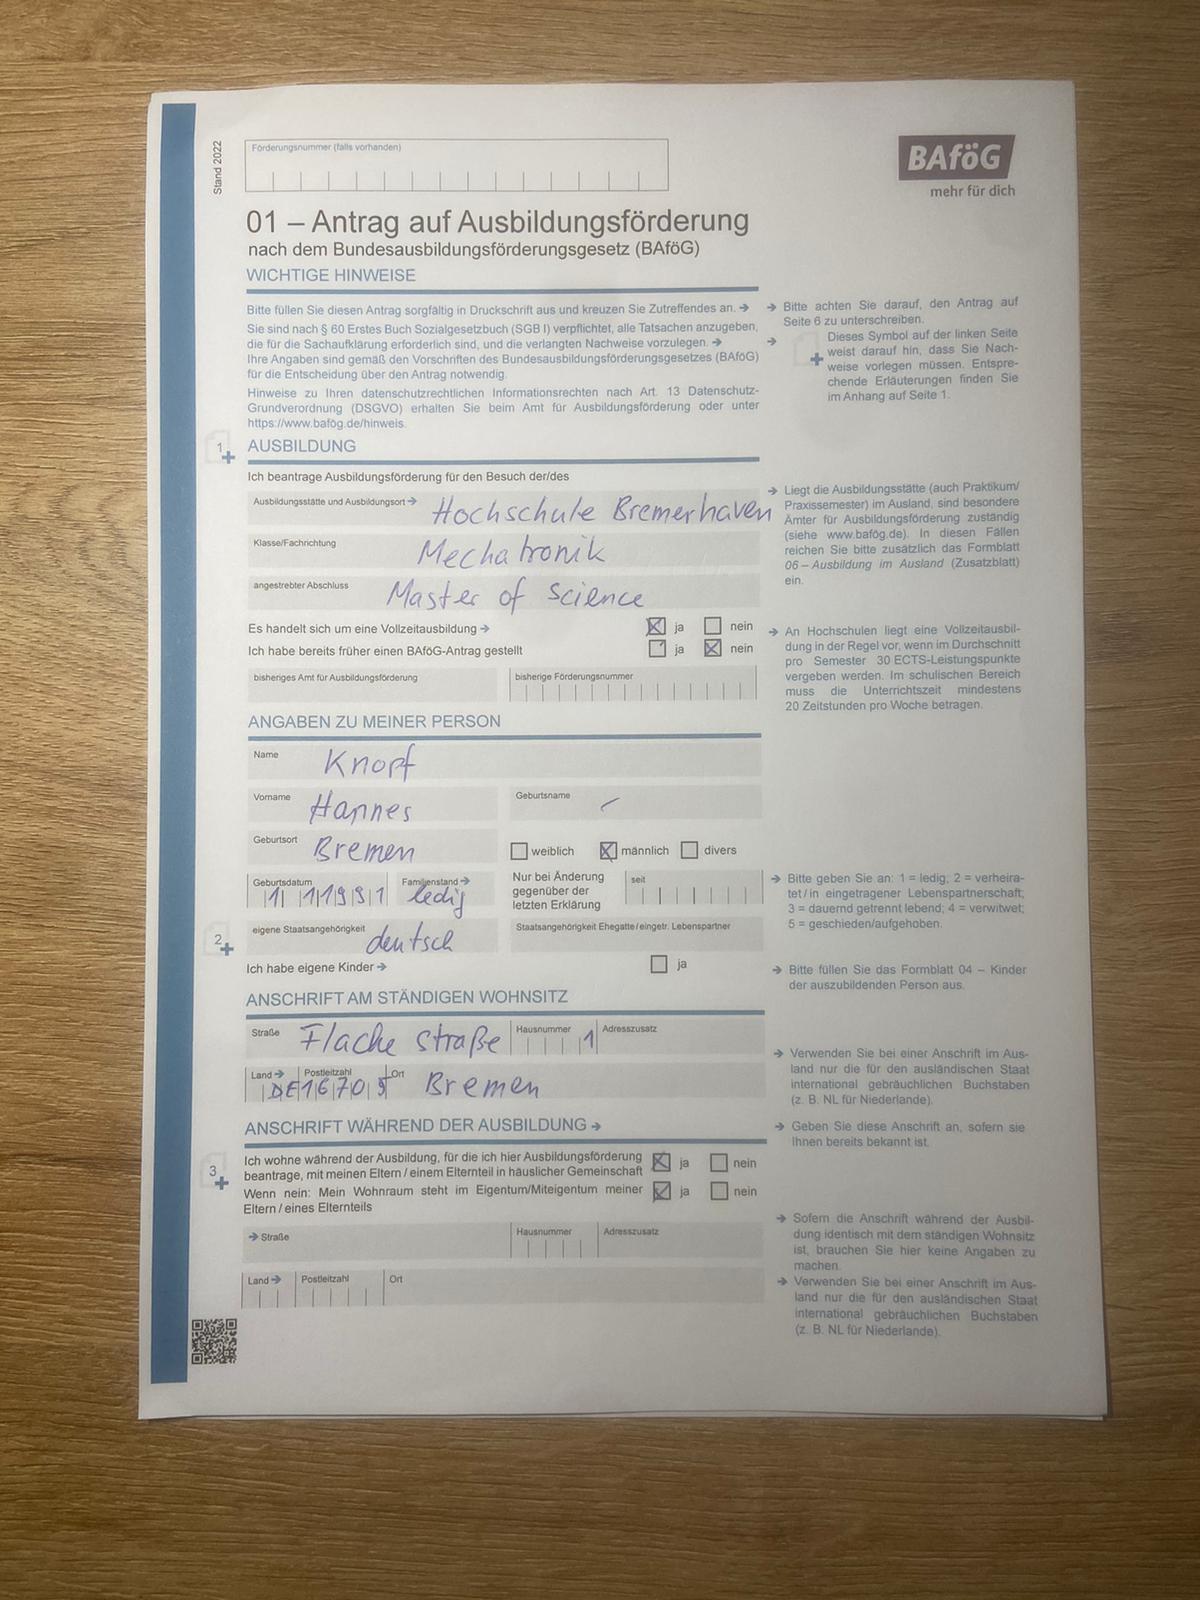 Stand 2022
Förderungsnummer (falls vorhanden)
BAföG
mehr für dich
01 – Antrag auf Ausbildungsförderung
nach dem Bundesausbildungsförderungsgesetz (BAföG)
WICHTIGE HINWEISE
Bitte füllen Sie diesen Antrag sorgfältig in Druckschrift aus und kreuzen Sie Zutreffendes an. →
Sie sind nach § 60 Erstes Buch Sozialgesetzbuch (SGB I) verpflichtet, alle Tatsachen anzugeben,
die für die Sachaufklärung erforderlich sind, und die verlangten Nachweise vorzulegen. →
Ihre Angaben sind gemäß den Vorschriften des Bundesausbildungsförderungsgesetzes (BAföG)
für die Entscheidung über den Antrag notwendig.
Hinweise zu Ihren datenschutzrechtlichen Informationsrechten nach Art. 13 Datenschutz-
Grundverordnung (DSGVO) erhalten Sie beim Amt für Ausbildungsförderung oder unter
https://www.bafög.de/hinweis.
→ Bitte achten Sie darauf, den Antrag auf
Seite 6 zu unterschreiben.
→ Dieses Symbol auf der linken Seite
weist darauf hin, dass Sie Nach-
weise vorlegen müssen. Entspre-
chende Erläuterungen finden Sie
im Anhang auf Seite 1.
1 AUSBILDUNG
Ich beantrage Ausbildungsförderung für den Besuch der/des
Ausbildungsstätte und Ausbildungsort → Hochschule Bremerhaven
Klasse/Fachrichtung Mechatronik
angestrebter Abschluss Master of Science
→ Liegt die Ausbildungsstätte (auch Praktikum/
Praxissemester) im Ausland, sind besondere
Ämter für Ausbildungsförderung zuständig
(siehe www.bafög.de). In diesen Fällen
reichen Sie bitte zusätzlich das Formblatt
06 – Ausbildung im Ausland (Zusatzblatt)
ein.
Es handelt sich um eine Vollzeitausbildung → ja nein
Ich habe bereits früher einen BAföG-Antrag gestellt ja nein
bisheriges Amt für Ausbildungsförderung bisherige Förderungsnummer
→ An Hochschulen liegt eine Vollzeitausbil-
dung in der Regel vor, wenn im Durchschnitt
pro Semester 30 ECTS-Leistungspunkte
vergeben werden. Im schulischen Bereich
muss die Unterrichtszeit mindestens
20 Zeitstunden pro Woche betragen.
ANGABEN ZU MEINER PERSON
Name Knopf
Vorname Hannes Geburtsname –
Geburtsort Bremen weiblich männlich divers
Geburtsdatum 1 1 1991 Familienstand → ledig
Nur bei Änderung
gegenüber der
letzten Erklärung
seit
→ Bitte geben Sie an: 1 = ledig; 2 = verheira-
tet / in eingetragener Lebenspartnerschaft;
3 = dauernd getrennt lebend; 4 = verwitwet;
5 = geschieden/aufgehoben.
2 eigene Staatsangehörigkeit deutsch Staatsangehörigkeit Ehegatte/eingetr. Lebenspartner
Ich habe eigene Kinder → ja
→ Bitte füllen Sie das Formblatt 04 – Kinder
der auszubildenden Person aus.
ANSCHRIFT AM STÄNDIGEN WOHNSITZ
Straße Flache straße Hausnummer 1 Adresszusatz
Land → DE Postleitzahl 16705 Ort Bremen
→ Verwenden Sie bei einer Anschrift im Aus-
land nur die für den ausländischen Staat
international gebräuchlichen Buchstaben
(z. B. NL für Niederlande).
ANSCHRIFT WÄHREND DER AUSBILDUNG →
→ Geben Sie diese Anschrift an, sofern sie
Ihnen bereits bekannt ist.
3 Ich wohne während der Ausbildung, für die ich hier Ausbildungsförderung
beantrage, mit meinen Eltern / einem Elternteil in häuslicher Gemeinschaft ja nein
Wenn nein: Mein Wohnraum steht im Eigentum/Miteigentum meiner
Eltern / eines Elternteils ja nein
→ Straße Hausnummer Adresszusatz
Land → Postleitzahl Ort
→ Sofern die Anschrift während der Ausbil-
dung identisch mit dem ständigen Wohnsitz
ist, brauchen Sie hier keine Angaben zu
machen.
→ Verwenden Sie bei einer Anschrift im Aus-
land nur die für den ausländischen Staat
international gebräuchlichen Buchstaben
(z. B. NL für Niederlande).